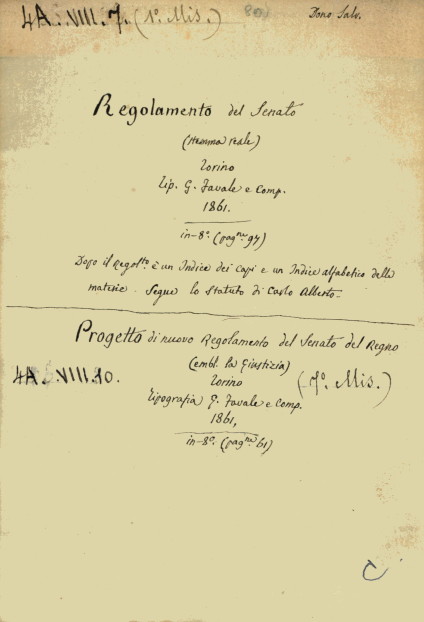 4A. VIII. 7. (1º. Mis.)
Dono Salv.
Regolamento del Senato
(stemma reale)
Torino
Tip. G. Favale e Comp.
1861.
in-8º. (pagne 94)
Dopo il Regolto. è un Indice dei Capi e un Indice alfabetico delle
materie. Segue lo Statuto di Carlo Alberto.
Progetto di nuovo Regolamento del Senato del Regno
(embl. la Giustizia)
4A. VIII. 10.
Torino
(7º. Mis.)
Tipografia G. Favale e Comp.
1861,
in-8º. (pagne 61)
C